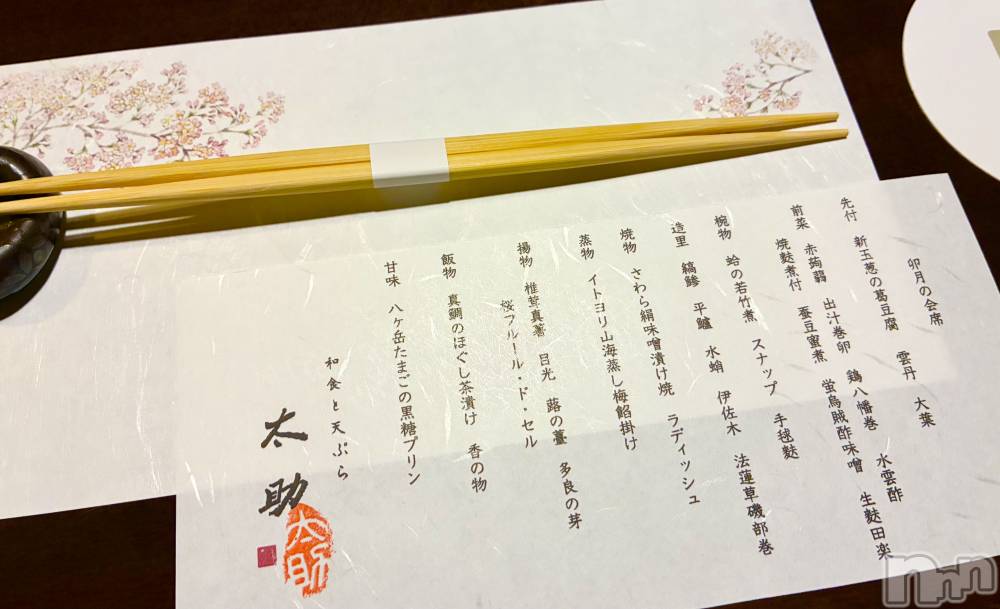 卯月の会席
先付 新玉葱の葛豆腐 雲丹 大葉
前菜 赤蒟蒻 出汁巻卵 鶏八幡巻 水雲酢
焼麩煮付 蚕豆蜜煮 蛍烏賊酢味噌 生麩田楽
椀物 蛤の若竹煮 スナップ 手毬麩
造里 縞鯵 平鱸 水蛸 伊佐木 法蓮草磯部巻
焼物 さわら絹味噌漬け焼 ラディッシュ
蒸物 イトヨリ山海蒸し梅餡掛け
揚物 椎茸真薯 目光 蕗の薹 多良の芽
桜フルール・ド・セル
飯物 真鯛のほぐし茶漬け 香の物
甘味 八ヶ岳たまごの黒糖プリン
和食と天ぷら
太助
太助
nnn